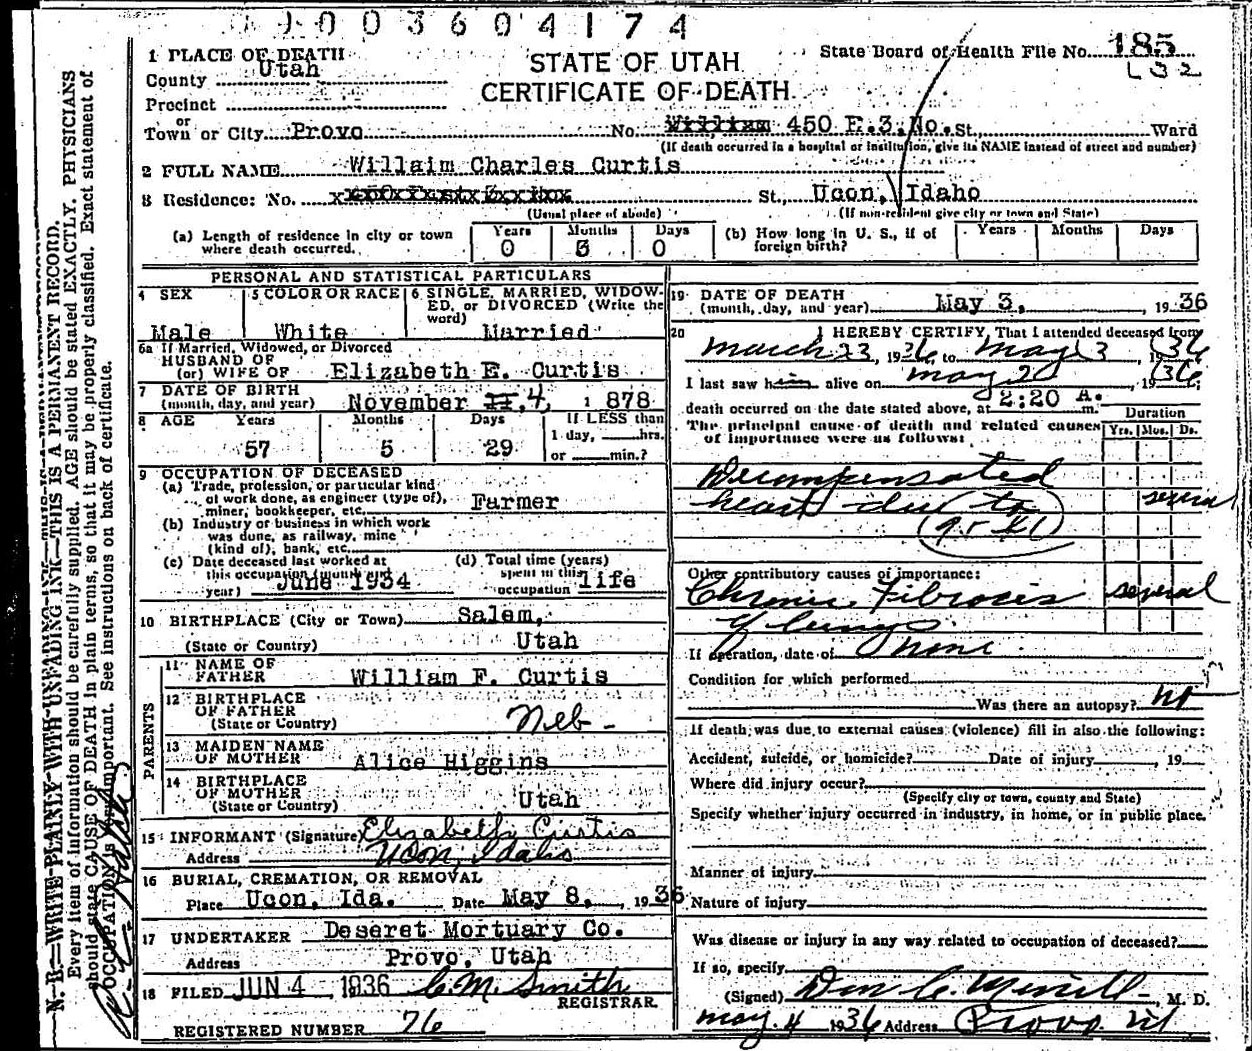 0 0 0 3 6 0 4 1 7 4
1 PLACE OF DEATH
County Utah
Precinct
or
Town or City Provo
STATE OF UTAH
CERTIFICATE OF DEATH
State Board of Health File No. 185
No. William 450 E.3.No. St., Ward
(If death occurred in a hospital or institution, give its NAME instead of street and number)
2 FULL NAME Willaim Charles Curtis
3 Residence: No. St., Ucon, Idaho
(Usual place of abode) (If non-resident give city or town and State)
(a) Length of residence in city or town where death occurred. Years 0 Months 3 Days 0
(b) How long in U. S., if of foreign birth? Years Months Days
PERSONAL AND STATISTICAL PARTICULARS
4 SEX Male
5 COLOR OR RACE White
6 SINGLE, MARRIED, WIDOWED, or DIVORCED (Write the word) Married
6a If Married, Widowed, or Divorced
HUSBAND OF
(or) WIFE OF Elizabeth E. Curtis
7 DATE OF BIRTH
(month, day, and year) November 4, 1878
8 AGE Years 57 Months 5 Days 29 If LESS than
1 day, hrs.
or min.?
9 OCCUPATION OF DECEASED
(a) Trade, profession, or particular kind
of work done, as engineer (type of),
miner, bookkeeper, etc. Farmer
(b) Industry or business in which work
was done, as railway, mine
(kind of), bank, etc.
(c) Date deceased last worked at
this occupation (month
year) June 1934
(d) Total time (years)
spent in this
occupation life
10 BIRTHPLACE (City or Town) Salem,
(State or Country) Utah
PARENTS
11 NAME OF
FATHER William F. Curtis
12 BIRTHPLACE
OF FATHER
(State or Country) Neb-
13 MAIDEN NAME
OF MOTHER Alice Higgins
14 BIRTHPLACE
OF MOTHER
(State or Country) Utah
15 INFORMANT (Signature) Elizabeth Curtis
Address Ucon, Idaho
16 BURIAL, CREMATION, OR REMOVAL
Place Ucon, Ida. Date May 8, 1936
17 UNDERTAKER Deseret Mortuary Co.
Address Provo, Utah
18 FILED JUN 4 1936 C.M. Smith
REGISTRAR.
REGISTERED NUMBER 76
19 DATE OF DEATH
(month, day, and year) May 3, 1936
20 I HEREBY CERTIFY, That I attended deceased from
March 23, 1936 to May 3, 1936
I last saw him alive on May 2, 1936;
death occurred on the date stated above, at 2:20 A. m.
The principal cause of death and related causes
of importance were as follows:
Duration
Yrs. Mos. Ds.
Decompensated
heart due to several
Other contributory causes of importance:
Chronic Fibrocis several
of lungs.
If operation, date of None
Condition for which performed
Was there an autopsy? No
If death was due to external causes (violence) fill in also the following:
Accident, suicide, or homicide? Date of injury , 19
Where did injury occur?
(Specify city or town, county and State)
Specify whether injury occurred in industry, in home, or in public place.
Manner of injury
Nature of injury
Was disease or injury in any way related to occupation of deceased?
If so, specify
(Signed) Don C. Merrill, M. D.
May. 4 1936 Address Provo. Ut
N. B.—WRITE PLAINLY WITH UNFADING INK—THIS IS A PERMANENT RECORD.
Every item of information should be carefully supplied. AGE should be stated EXACTLY. PHYSICIANS
should state CAUSE OF DEATH in plain terms, so that it may be properly classified. Exact statement of
OCCUPATION is important. See instructions on back of certificate.